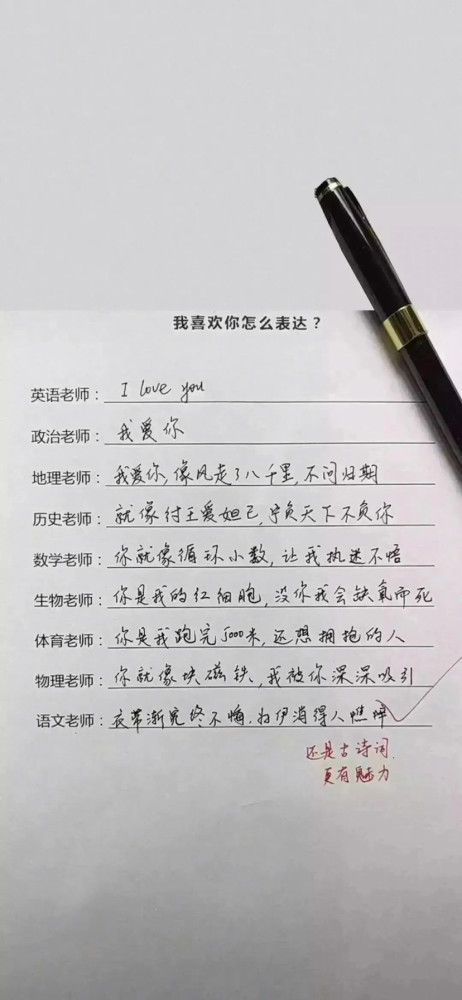 我喜欢你怎么表达？
英语老师：I love you
政治老师：我爱你
地理老师：我爱你，像风走了八千里，不问归期
历史老师：就像纣王爱妲己，宁负天下不负你
数学老师：你就像循环小数，让我执迷不悟
生物老师：你是我的红细胞，没你我会缺氧而死
体育老师：你是我跑完5000米，还想拥抱的人
物理老师：你就像块磁铁，我被你深深吸引
语文老师：衣带渐宽终不悔，为伊消得人憔悴
还是古诗词，
更有魅力